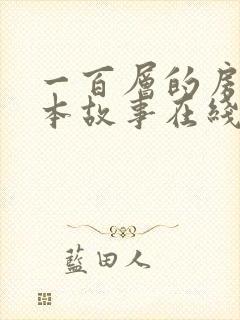 一百層的房
本故事在綫
藍田人